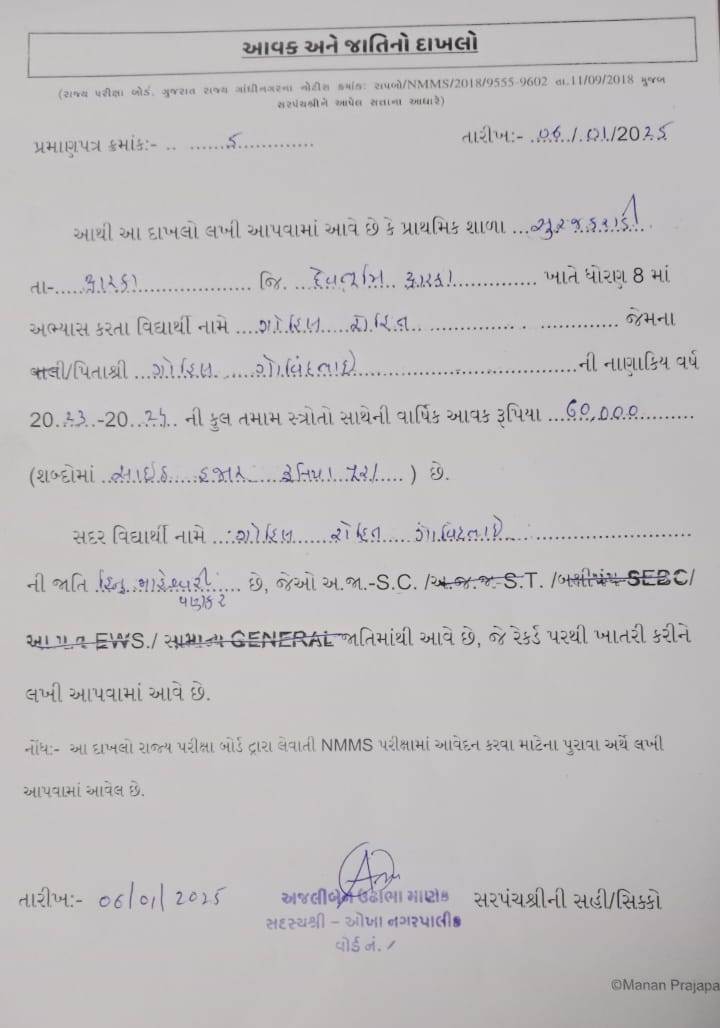 આવક અને જાતિનો દાખલો
(રાજ્ય પરીક્ષા બોર્ડ, ગુજરાત રાજ્ય ગાંધીનગરના નોટીસ ક્રમાંક: રાપબો/NMMS/2018/9555-9602 તા.11/09/2018 મુજબ
સરપંચશ્રીને આપેલ સત્તાના આધારે)
પ્રમાણપત્ર ક્રમાંક:- .. ......5.............. તારીખ:- ..06../.01./2025
આથી આ દાખલો લખી આપવામાં આવે છે કે પ્રાથમિક શાળા ...સુરજકરાડી..
તા-....દ્વારકા.................. જિ. ..દેવભૂમિ દ્વારકા............. ખાતે ધોરણ 8 માં
અભ્યાસ કરતા વિદ્યાર્થી નામે ...ગોહિલ રોહિત.......................... જેમના
વાલી/પિતાશ્રી ...ગોહિલ ગોવિંદભાઈ...............................ની નાણાકિય વર્ષ
20.23.-20..24.. ની કુલ તમામ સ્ત્રોતો સાથેની વાર્ષિક આવક રૂપિયા ...60,000........
(શબ્દોમાં ..સાઈઠ હજાર રૂપિયા પુરા.... ) છે.
સદર વિદ્યાર્થી નામે ...ગોહિલ રોહિત ગોવિંદભાઈ..........................
ની જાતિ હિન્દુ મહેશ્વરી.... છે, જેઓ અ.જા.-S.C. /અ.જ.જા-S.T. /બક્ષીપંચ-SEBC/
વણકર
આ.પ.વ EWS./ સામાન્ય GENERAL જાતિમાંથી આવે છે, જે રેકર્ડ પરથી ખાતરી કરીને
લખી આપવામાં આવે છે.
નોંધ:- આ દાખલો રાજ્ય પરીક્ષા બોર્ડ દ્વારા લેવાતી NMMS પરીક્ષામાં આવેદન કરવા માટેના પુરાવા અર્થે લખી
આપવામાં આવેલ છે.
તારીખ:- 06/01/2025 સરપંચશ્રીની સહી/સિક્કો
માણેક
સદસ્યશ્રી - ઓખા નગરપાલીકા
વોર્ડ નં.
©Manan Prajapa